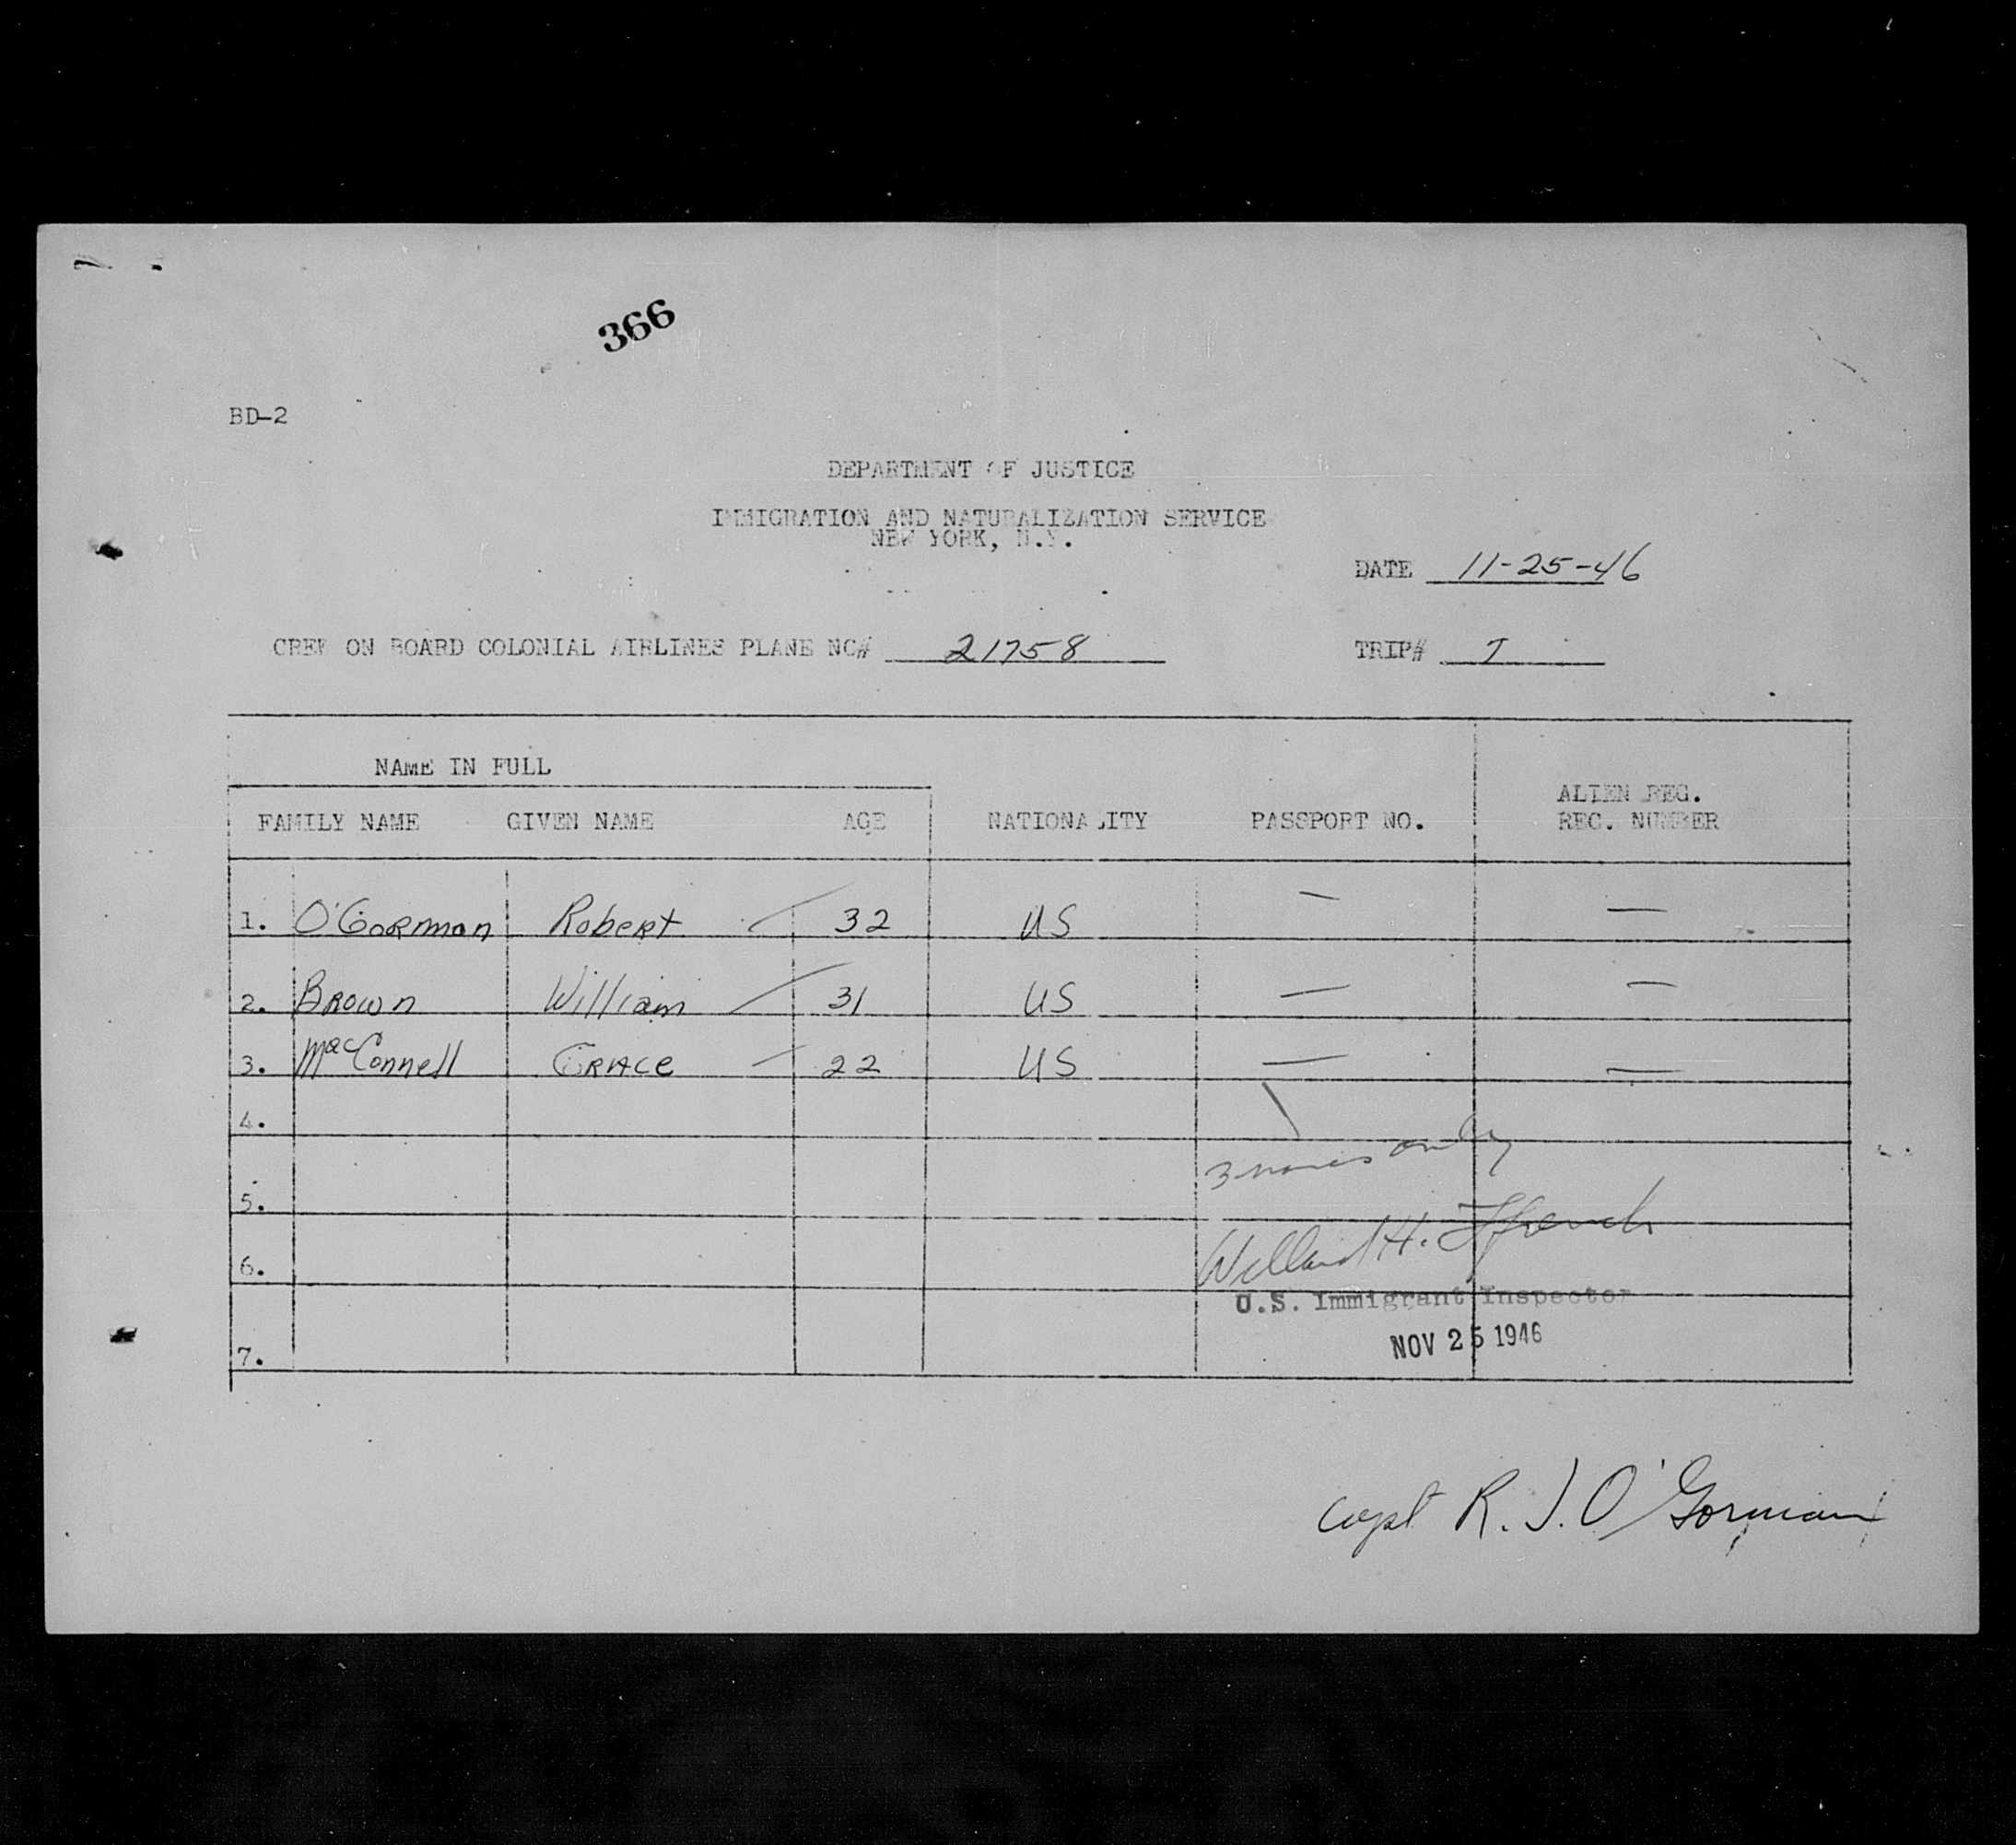 366
BD-2
DEPARTMENT OF JUSTICE
IMMIGRATION AND NATURALIZATION SERVICE
NEW YORK, N.Y.
DATE 11-25-46
CREW ON BOARD COLONIAL AIRLINES PLANE NC# 21758 TRIP#
NAME IN FULL
FAMILY NAME GIVEN NAME AGE NATIONALITY PASSPORT NO. ALIEN REG. REC. NUMBER
1. O'Gorman Robert 32 US — —
2. Brown William 31 US — —
3. MacConnell Grace 22 US — —
4.
3 names only
5.
Willard H.
6.
U.S. Immigrant Inspector
NOV 25 1946
7.
Capt R. J. O'Gorman